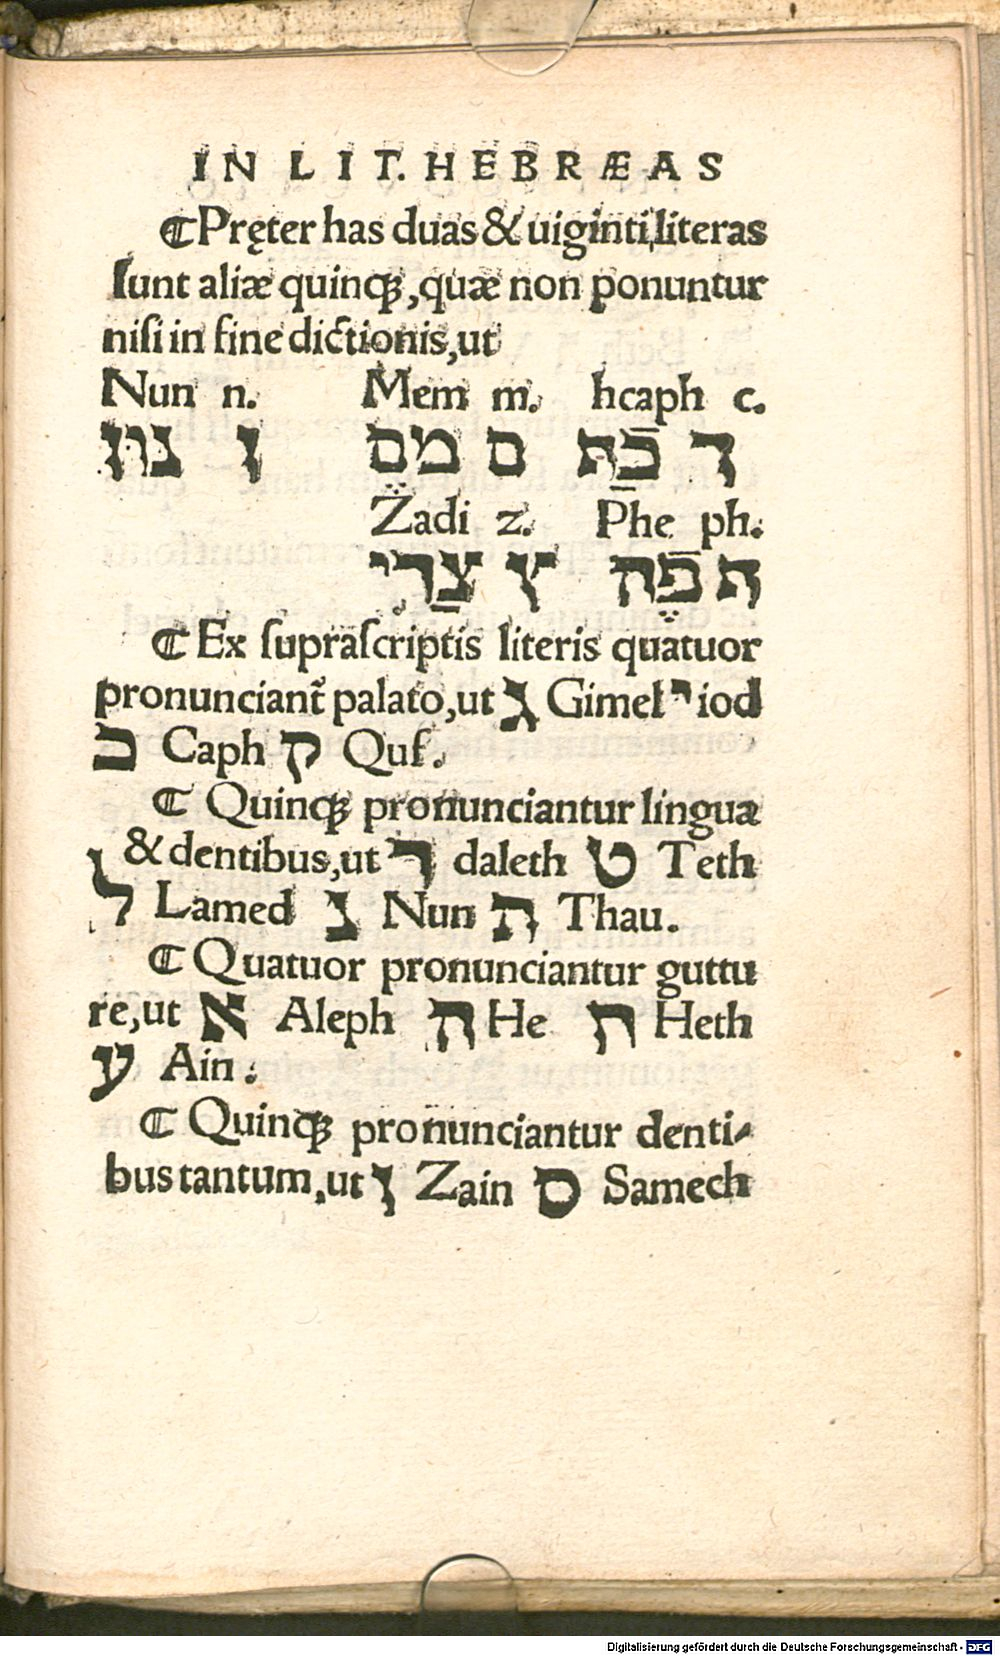 IN LIT. HEBRÆAS
⁋Pręter has duas & uiginti,literas
ſunt aliæ quinqꝫ,quæ non ponuntur
niſi in fine dictionis,ut
Nun n. Mem m. hcaph c.
נון ן מם ם כֿת ך
Zadi z. Phe ph.
צַדי ץ פֿה ת
⁋ Ex ſupraſcriptis literis quatuor
pronunciant᷑ palato,ut ג Gimel י iod
כ Caph ק Quf.
⁋ Quinqꝫ pronunciantur lingua
& dentibus,ut ד daleth ט Teth
ל Lamed נ Nun ת Thau.
⁋ Quatuor pronunciantur guttu
re,ut א Aleph ה He ח Heth
ע Ain.
⁋ Quinqꝫ pronunciantur denti-
bus tantum,ut ז Zain ס Samech
Digitalisierung gefördert durch die Deutsche Forschungsgemeinschaft - DFG